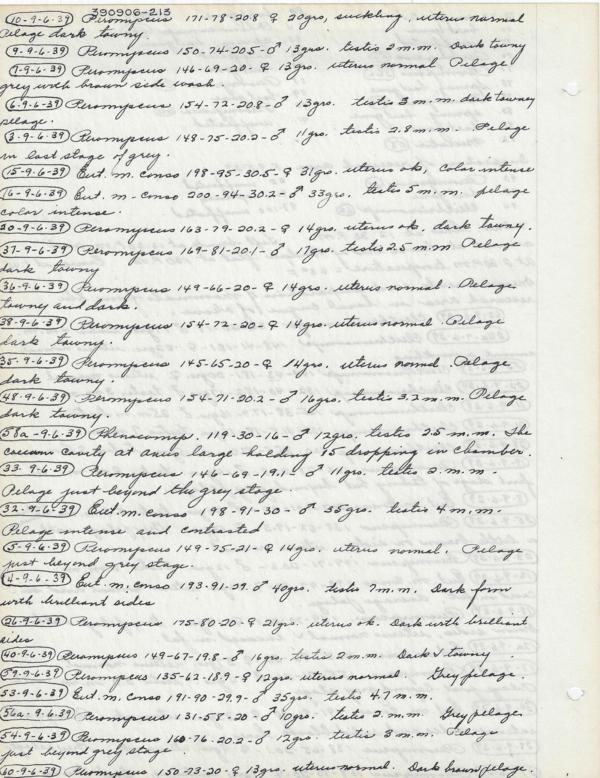 390906-213
10-9-6-39 Peromyscus 171-78-20.8 ♀ 20grs, suckling, uterus normal
Pelage dark towny.
9-9-6-39 Peromyscus 150-74-20.5-♂ 13grs. testis 2 m.m. Dark towny
7-9-6-39 Peromyscus 146-69-20-♀ 13grs. uterus normal Pelage
grey with brown side wash.
6-9-6-39 Peromyscus 154-72-20.8-♂ 13grs. testis 3 m.m. dark towney
pelage.
3-9-6-39 Peromyscus 148-75-20.2-♂ 11grs. testis 2.8 m.m. Pelage
in last stage of grey.
15-9-6-39 Eut. m. conso 198-95-30.5-♀ 31grs. uterus ok, color intense
16-9-6-39 Eut. m-conso 200-94-30.2-♂ 33grs. testis 5 m.m. pelage
color intense.
20-9-6-39 Peromyscus 163-79-20.2-♀ 14grs. uterus ok. dark towny.
37-9-6-39 Peromyscus 169-81-20.1-♂ 17grs. testis 2.5 m.m Pelage
dark towny
36-9-6-39 Peromyscus 149-66-20-♀ 14grs. uterus normal. Pelage
towny and dark.
38-9-6-39 Peromyscus 154-72-20-♀ 14grs. uterus normal. Pelage
dark towny.
35-9-6-39 Peromyscus 145-65-20-♀ 14grs. uterus normal. Pelage
dark towny.
48-9-6-39 Peromyscus 154-71-20.2-♂ 16grs. testis 3.2 m.m. Pelage
dark towny.
58a-9-6-39 Phenacomys. 119-30-16-♂ 12grs. testis 2.5 m.m. The
cavity at anus large holding 15 dropping in chamber.
33-9-6-39 Peromyscus 146-69-19.1-♂ 11grs. testis 2. m.m-
Pelage just beyond the grey stage.
32-9-6-39 Eut. m. conso 198-91-30-♂ 35grs. testis 4 m.m.
Pelage intense and contrasted
5-9-6-39 Peromyscus 149-75-21-♀ 14grs. uterus normal. Pelage
just beyond grey stage.
4-9-6-39 Eut. m. conso 193-91-29. ♂ 40grs. testis 7 m.m. Dark form
with brilliant sides
26-9-6-39 Peromyscus 175-80-20-♀ 21grs. uterus ok. Dark with brilliant
sides
40-9-6-39 Peromyscus 149-67-19.8-♂ 16grs. testis 2 m.m. Dark & towny
59-9-6-39 Peromyscus 135-62-18.9-♀ 12grs. uterus normal. Grey pelage.
53-9-6-39 Eut. m. conso 191-90-29.9-♂ 35grs. testis 4.7 m.m.
56a-9-6-39 Peromyscus 131-58-20-♂ 10grs. testis 2. m.m. Grey pelage
54-9-6-39 Peromyscus 160-76-20.2-♂ 12grs. testis 3 m.m. Pelage
just beyond grey stage
60-9-6-39 Peromyscus 150-73-20-♀ 13grs. uterus normal. Dark brown pelage.